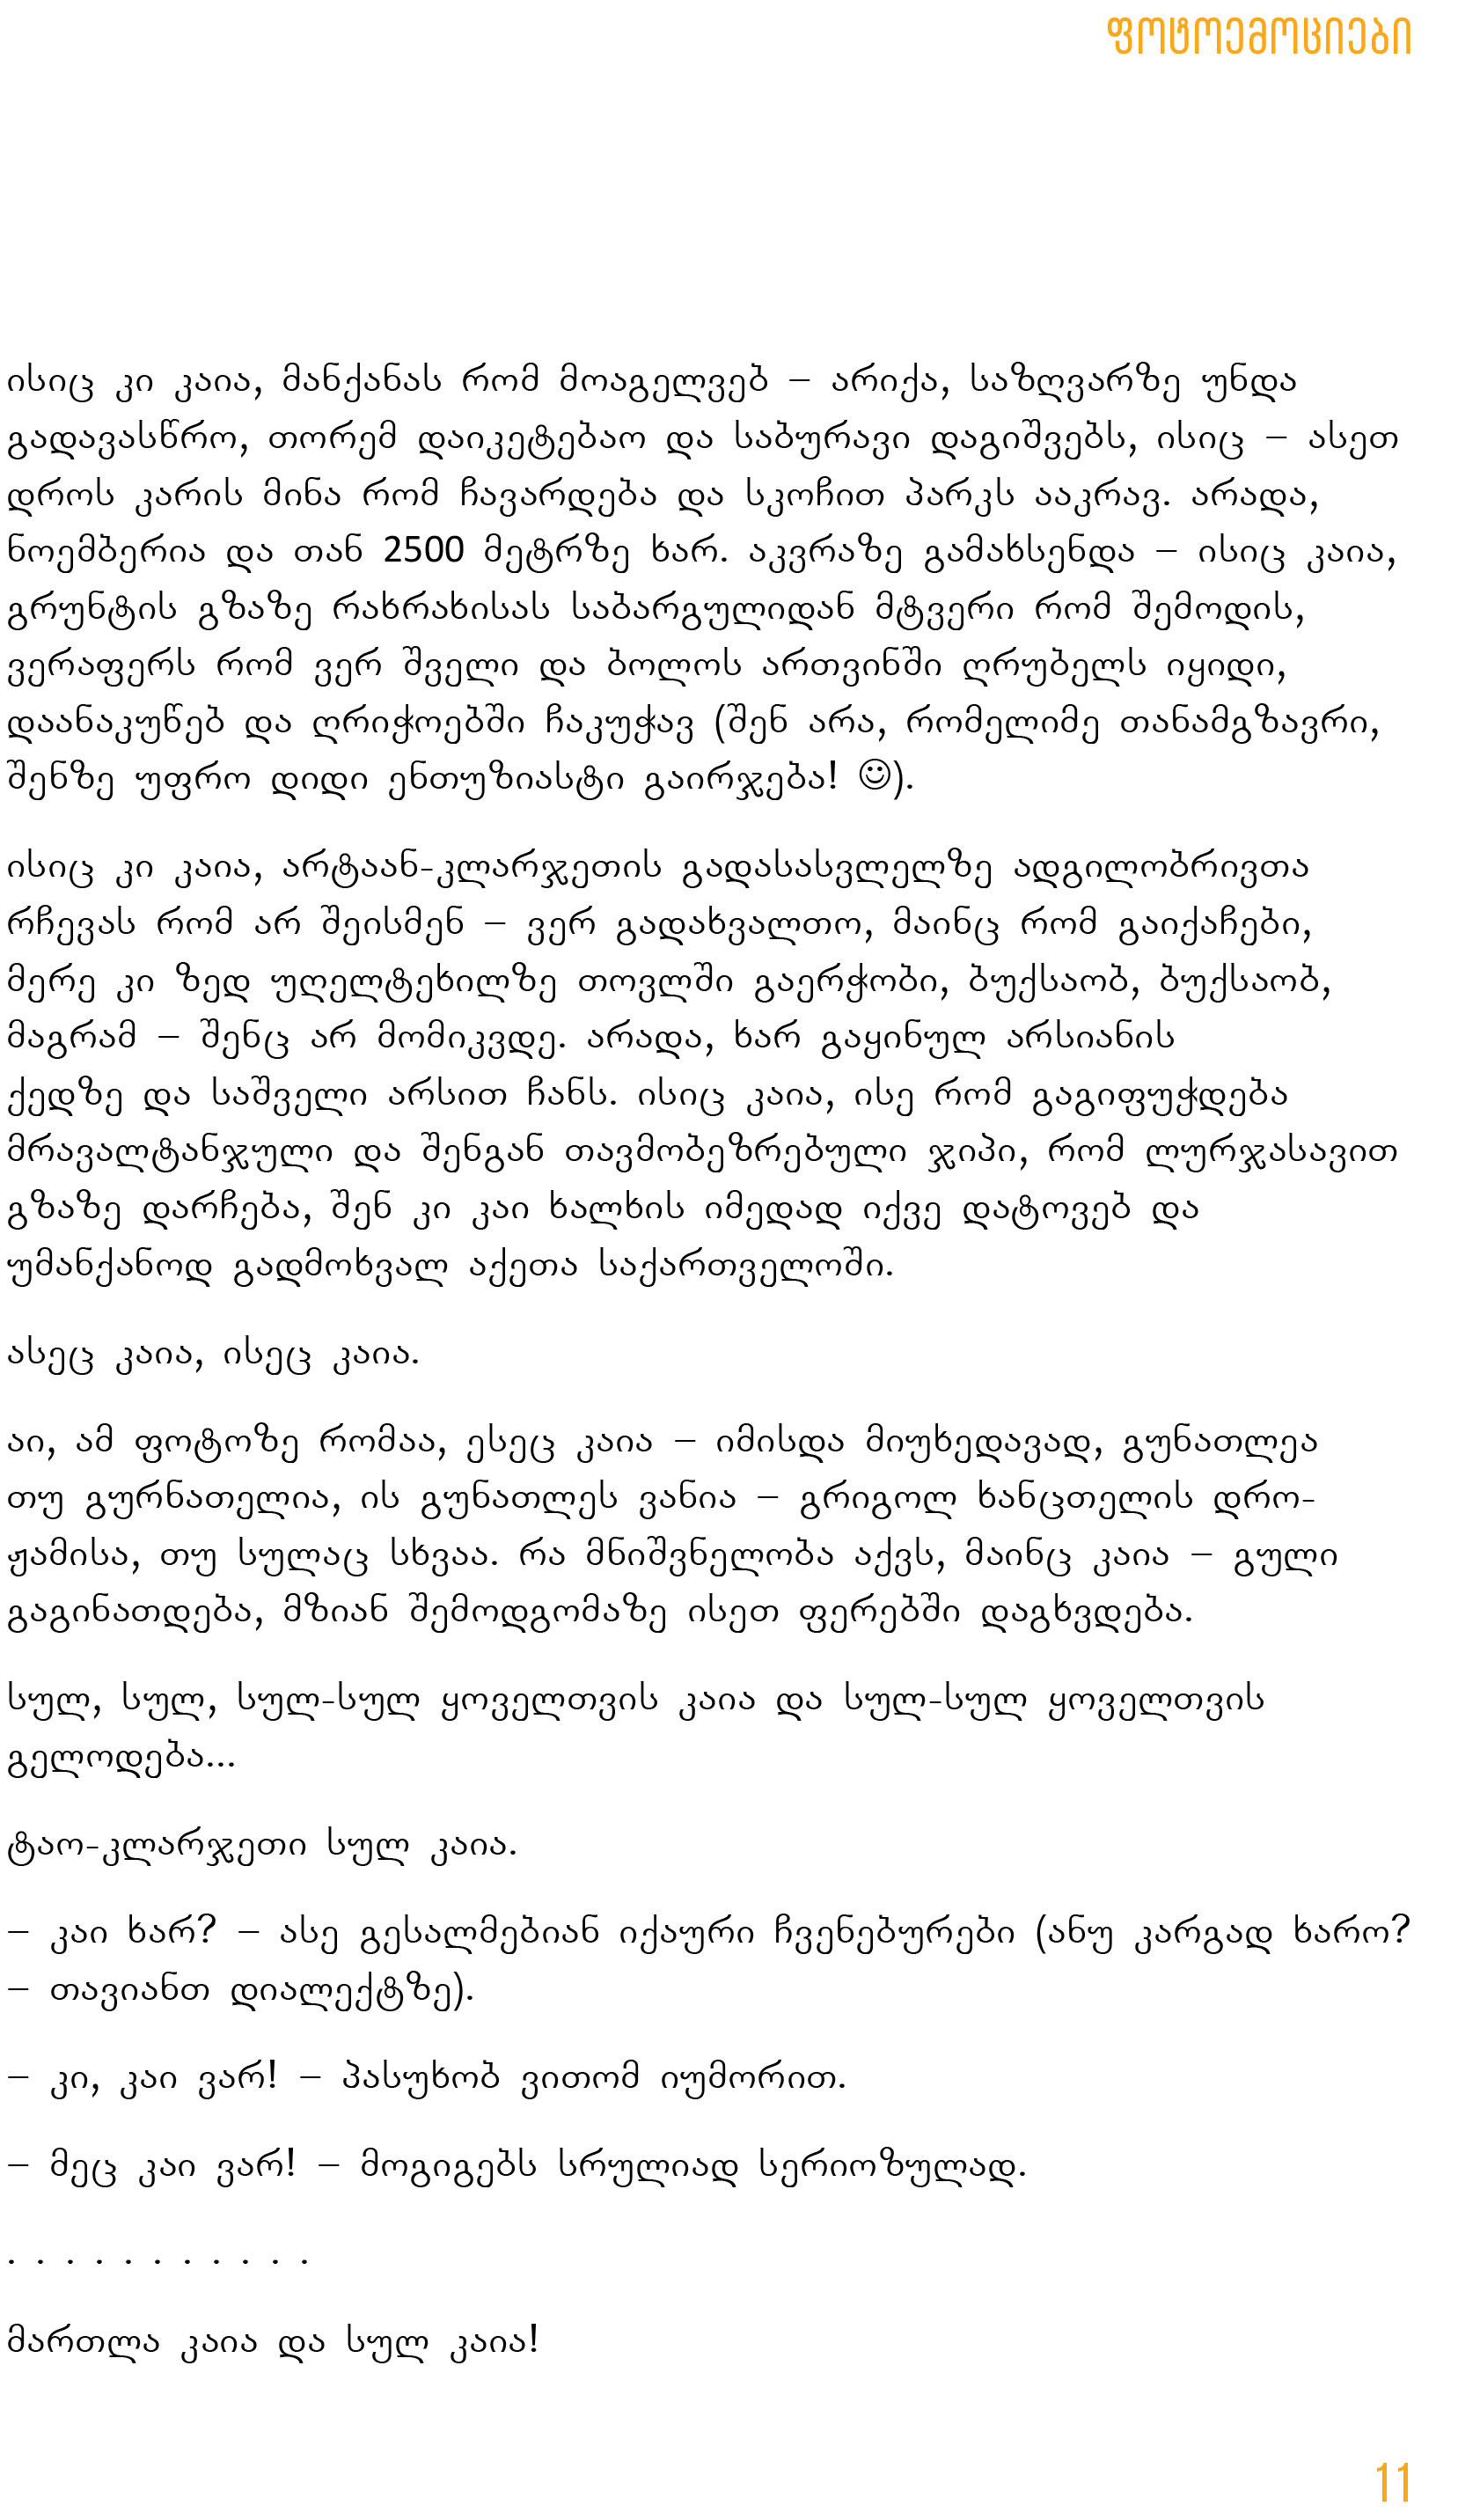 ფოტოემოციები
ისიც კი კაია, მანქანას რომ მოაგელვებ – არიქა, საზღვარზე უნდა
გადავასწრო, თორემ დაიკეტებაო და საბურავი დაგიშვებს, ისიც – ასეთ
დროს კარის მინა რომ ჩავარდება და სკოჩით პარკს ააკრავ. არადა,
ნოემბერია და თან 2500 მეტრზე ხარ. აკვრაზე გამახსენდა – ისიც კაია,
გრუნტის გზაზე რახრახისას საბარგულიდან მტვერი რომ შემოდის,
ვერაფერს რომ ვერ შველი და ბოლოს ართვინში ღრუბელს იყიდი,
დაანაკუწებ და ღრიჭოებში ჩაკუჭავ (შენ არა, რომელიმე თანამგზავრი,
შენზე უფრო დიდი ენთუზიასტი გაირჯება! ☺).
ისიც კი კაია, არტაან-კლარჯეთის გადასასვლელზე ადგილობრივთა
რჩევას რომ არ შეისმენ – ვერ გადახვალთო, მაინც რომ გაიქაჩები,
მერე კი ზედ უღელტეხილზე თოვლში გაერჭობი, ბუქსაობ, ბუქსაობ,
მაგრამ – შენც არ მომიკვდე. არადა, ხარ გაყინულ არსიანის
ქედზე და საშველი არსით ჩანს. ისიც კაია, ისე რომ გაგიფუჭდება
მრავალტანჯული და შენგან თავმობეზრებული ჯიპი, რომ ლურჯასავით
გზაზე დარჩება, შენ კი კაი ხალხის იმედად იქვე დატოვებ და
უმანქანოდ გადმოხვალ აქეთა საქართველოში.
ასეც კაია, ისეც კაია.
აი, ამ ფოტოზე რომაა, ესეც კაია – იმისდა მიუხედავად, გუნათლეა
თუ გურნათელია, ის გუნათლეს ვანია – გრიგოლ ხანცთელის დრო-
ჟამისა, თუ სულაც სხვაა. რა მნიშვნელობა აქვს, მაინც კაია – გული
გაგინათდება, მზიან შემოდგომაზე ისეთ ფერებში დაგხვდება.
სულ, სულ, სულ-სულ ყოველთვის კაია და სულ-სულ ყოველთვის
გელოდება...
ტაო-კლარჯეთი სულ კაია.
– კაი ხარ? – ასე გესალმებიან იქაური ჩვენებურები (ანუ კარგად ხარო?
– თავიანთ დიალექტზე).
– კი, კაი ვარ! – პასუხობ ვითომ იუმორით.
– მეც კაი ვარ! – მოგიგებს სრულიად სერიოზულად.
. . . . . . . . . . .
მართლა კაია და სულ კაია!
11